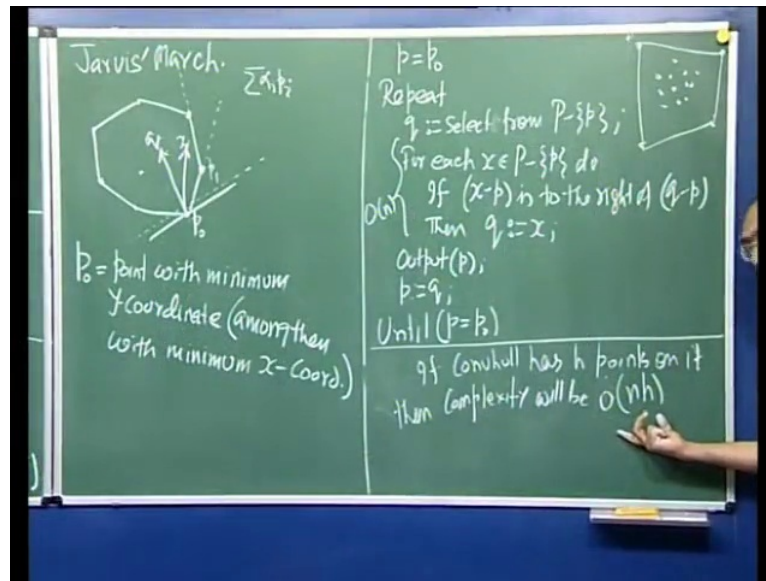 Jarvis' March.
Σαᵢpᵢ
q
x
p₁
p₀
p₀ = point with minimum
y-coordinate (among them
with minimum x-coord.)
p = p₀
Repeat
q := Select from P-{p};
For each x ∈ P-{p} do
If (x-p) is to the right of (q-p)
O(n)
Then q := x;
Output(p);
p := q;
Until (p = p₀)
If Convhull has h points on it
then Complexity will be O(nh)
)